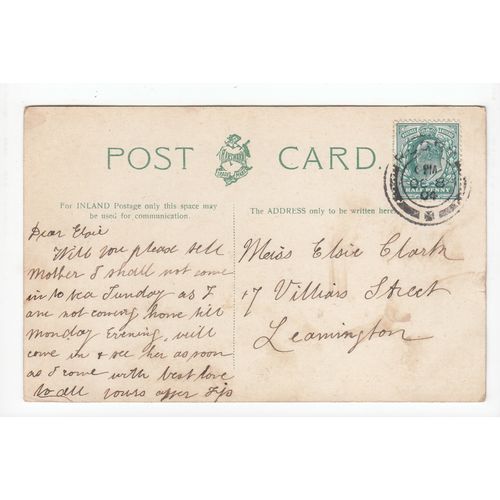 POST CARD.
For INLAND Postage only this space may
be used for communication.
The ADDRESS only to be written here
HALF PENNY
Dear Elsie
Will you please tell
Mother I shall not come
in to tea Sunday as I
are not coming home till
Monday Evening, will
come in & see her as soon
as I come with best love
to all yours affer
Miss Elsie Clark
17 Villiars Street
Leamington